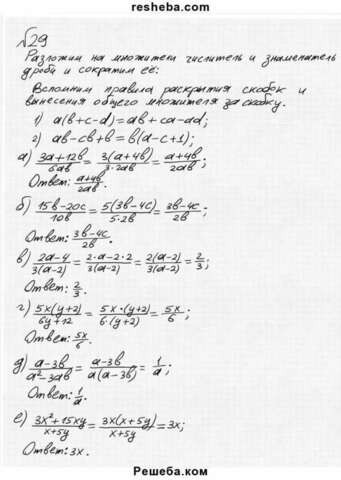 resheba.com
№29
Разложим на множители числитель и знаменатель
дроби и сократим её:
Вспомним правила раскрытия скобок и
вынесения общего множителя за скобку.
1) a(b+c-d)=ab+ca-ad;
2) ab-cb+b=b(a-c+1);
а) (3a+12b)/(6ab) = (3(a+4b))/(3·2ab) = (a+4b)/(2ab);
Ответ: (a+4b)/(2ab).
б) (15b-20c)/(10b) = (5(3b-4c))/(5·2b) = (3b-4c)/(2b);
Ответ: (3b-4c)/(2b).
в) (2a-4)/(3(a-2)) = (2·a-2·2)/(3(a-2)) = (2(a-2))/(3(a-2)) = 2/3;
Ответ: 2/3.
г) (5x(y+2))/(6y+12) = (5x·(y+2))/(6·(y+2)) = 5x/6;
Ответ: 5x/6.
д) (a-3b)/(a²-3ab) = (a-3b)/(a(a-3b)) = 1/a;
Ответ: 1/a.
е) (3x²+15xy)/(x+5y) = (3x(x+5y))/(x+5y) = 3x;
Ответ: 3x.
Решеба.ком